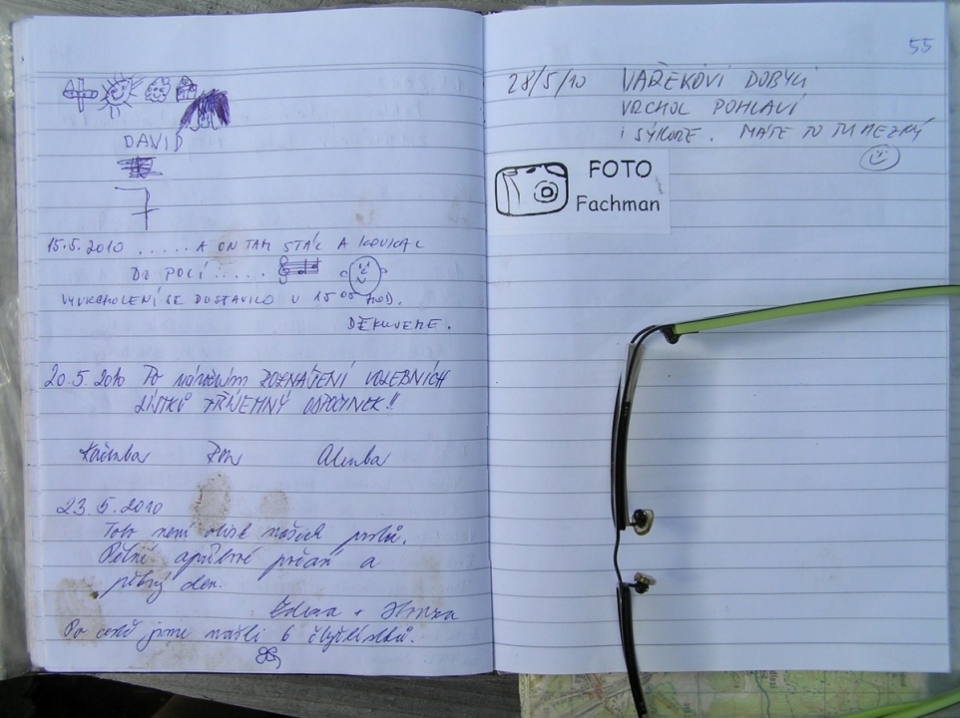 DAVID
7
15.5.2010 ..... A ON TAM STÁL A KOUKAL
DO POLÍ .....
VYVRCHOLENÍ SE DOSTAVILO V 15 05 HOD.
DĚKUJEME.
20.5.2010 Po VOLEBNÍCH
LÍSTKŮ PŘÍJEMNÝ ODPOČINEK!!
Káčenka Alenka
23.5.2010
Toto není otisk našich prstů.
Pěkné počasí a
pěkný den.
+ Honza
Po cestě jsme našli 6 čtyřlístků.
55
28/5/10 VAŘEKOVI DOBYLI
VRCHOL POHLAVÍ
I SÝKORE. MÁTE TO TU HEZKÝ
FOTO
Fachman